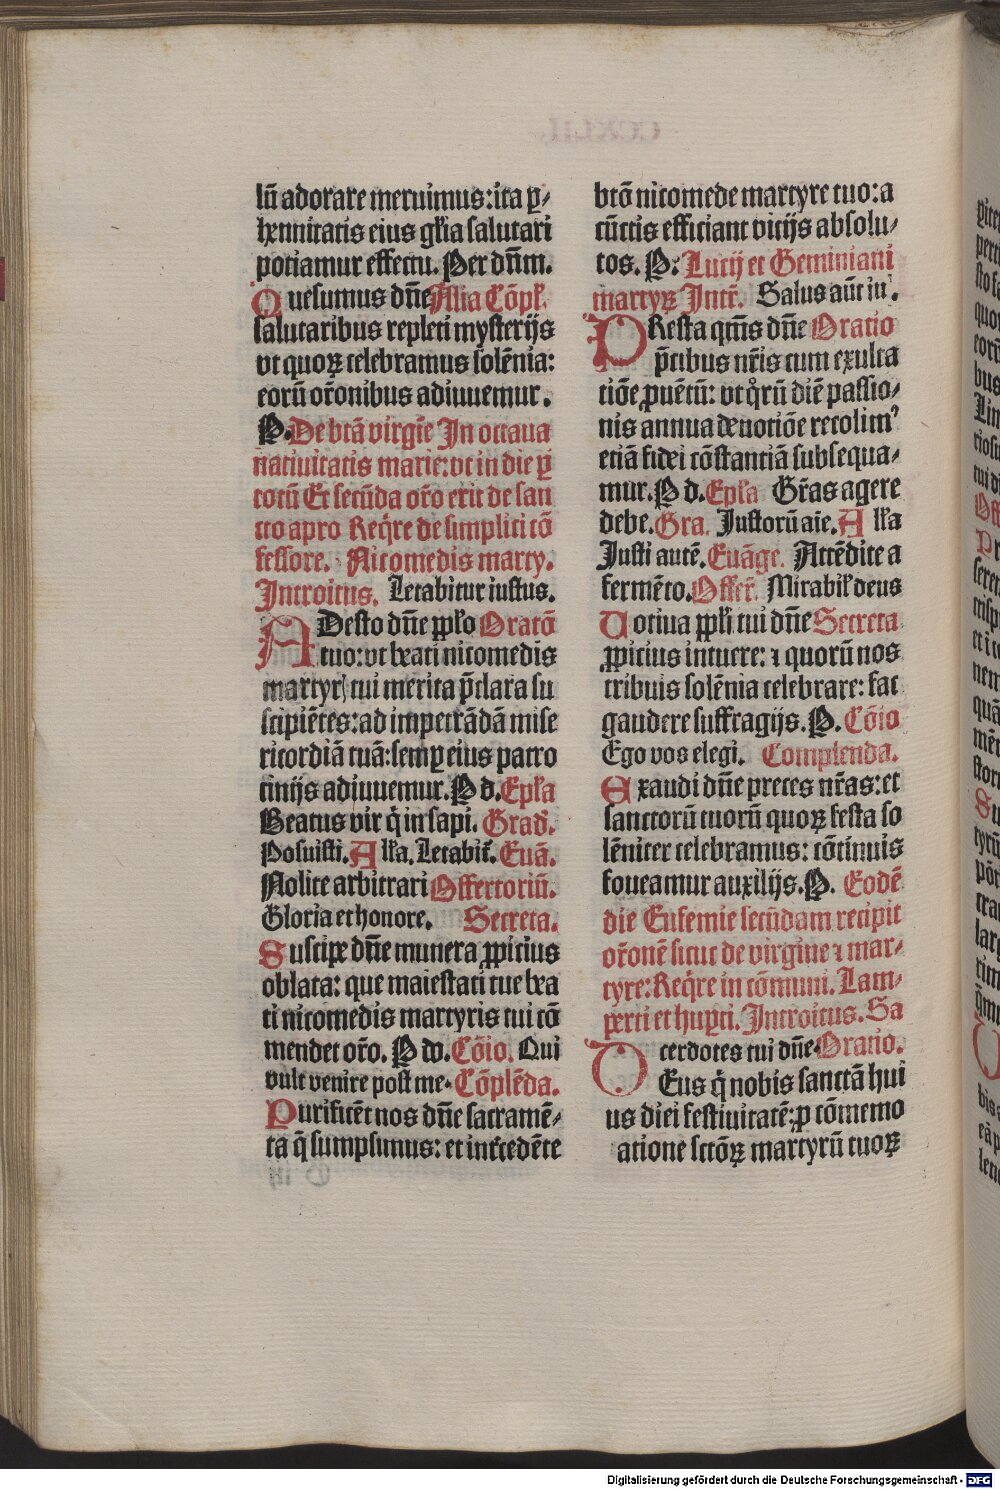 lū adorare meruimus: ita ꝑ/
hennitatis eius gl̄ia salutari
potiamur effectu. Per dn̄m.
Quesumus dn̄e Alia Cōpl̄.
salutaribus repleti mysterijs
vt quoꝝ celebramus solēnia:
eorū or̄onibus adiuuemur.
P. De btā virgīe In octaua
natiuitatis marie: vt in die ꝑ
totū Et secūda or̄o erit de san
cto apro Req̄re de simplici cō
fessore. Nicomedis marty.
Introitus. Letabitur iustus.
ADesto dn̄e ppl̄o Oratō
tuo: vt beati nicomedis
martyrꝭ tui merita p̄clara su
scipiētes: ad impetrādā mise
ricordiā tuā: semꝑ eius patro
cinijs adiuuemur. P d. Epl̄a
Beatus vir q̄ in sapi. Grad̄.
Posuisti. All̄a. Letabit̄. Euā.
Nolite arbitrari Offertoriū.
Gloria et honore. Secreta.
Suscipe dn̄e munera ꝓpicius
oblata: que maiestati tue bea
ti nicomedis martyris tui cō
mendet or̄o. P do. Cōio. Qui
vult venire post me. Cōplēda.
Purificēt nos dn̄e sacramē/
ta q̄ sumpsimus: et int̄cedēte
btō nicomede martyre tuo: a
cūctis efficiant vicijs absolu/
tos. P. Lucij et Geminiani
martyꝝ Intr̄. Salus aūt iu'.
PResta qm̄s dn̄e Oratio
p̄cibus nr̄is cum exulta
tiōe ꝓuētū: vt q̊rū diē passio/
nis annua deuotiōe recolim⁹
etiā fidei cōstantiā subsequa/
mur. P d. Epl̄a Gr̄as agere
debe. Gra. Iustorū aīe. All̄a
Iusti autē. Euāge. Attēdite a
fermēto. Offer̄. Mirabil̄ deus
Uotiua ppl̄i tui dn̄e Secreta
ꝓpicius intuere: ⁊ quorū nos
tribuis solēnia celebrare: fac
gaudere suffragijs. P. Cōio
Ego vos elegi. Complenda.
Exaudi dn̄e preces nr̄as: et
sanctorū tuorū quoꝝ festa so
lēniter celebramus: cōtinuis
foueamur auxilijs. P. Eodē
die Eufemie secūdam recipit
or̄onē sicut de virgine ⁊ mar/
tyre: Req̄re in cōmuni. Lam/
perti et huꝑti. Introitus. Sa
cerdotes tui dn̄e. Oratio.
DEus q̄ nobis sanctā hui
us diei festiuitatē; ꝑ cōmemo
atione sctōꝝ martyrū tuoꝝ
Digitalisierung gefördert durch die Deutsche Forschungsgemeinschaft - DFG